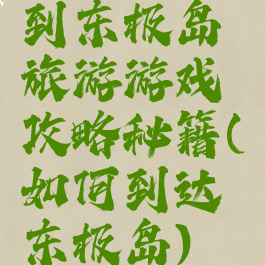 到东极岛
旅游游戏
攻略秘籍(
如何到达
东极岛)